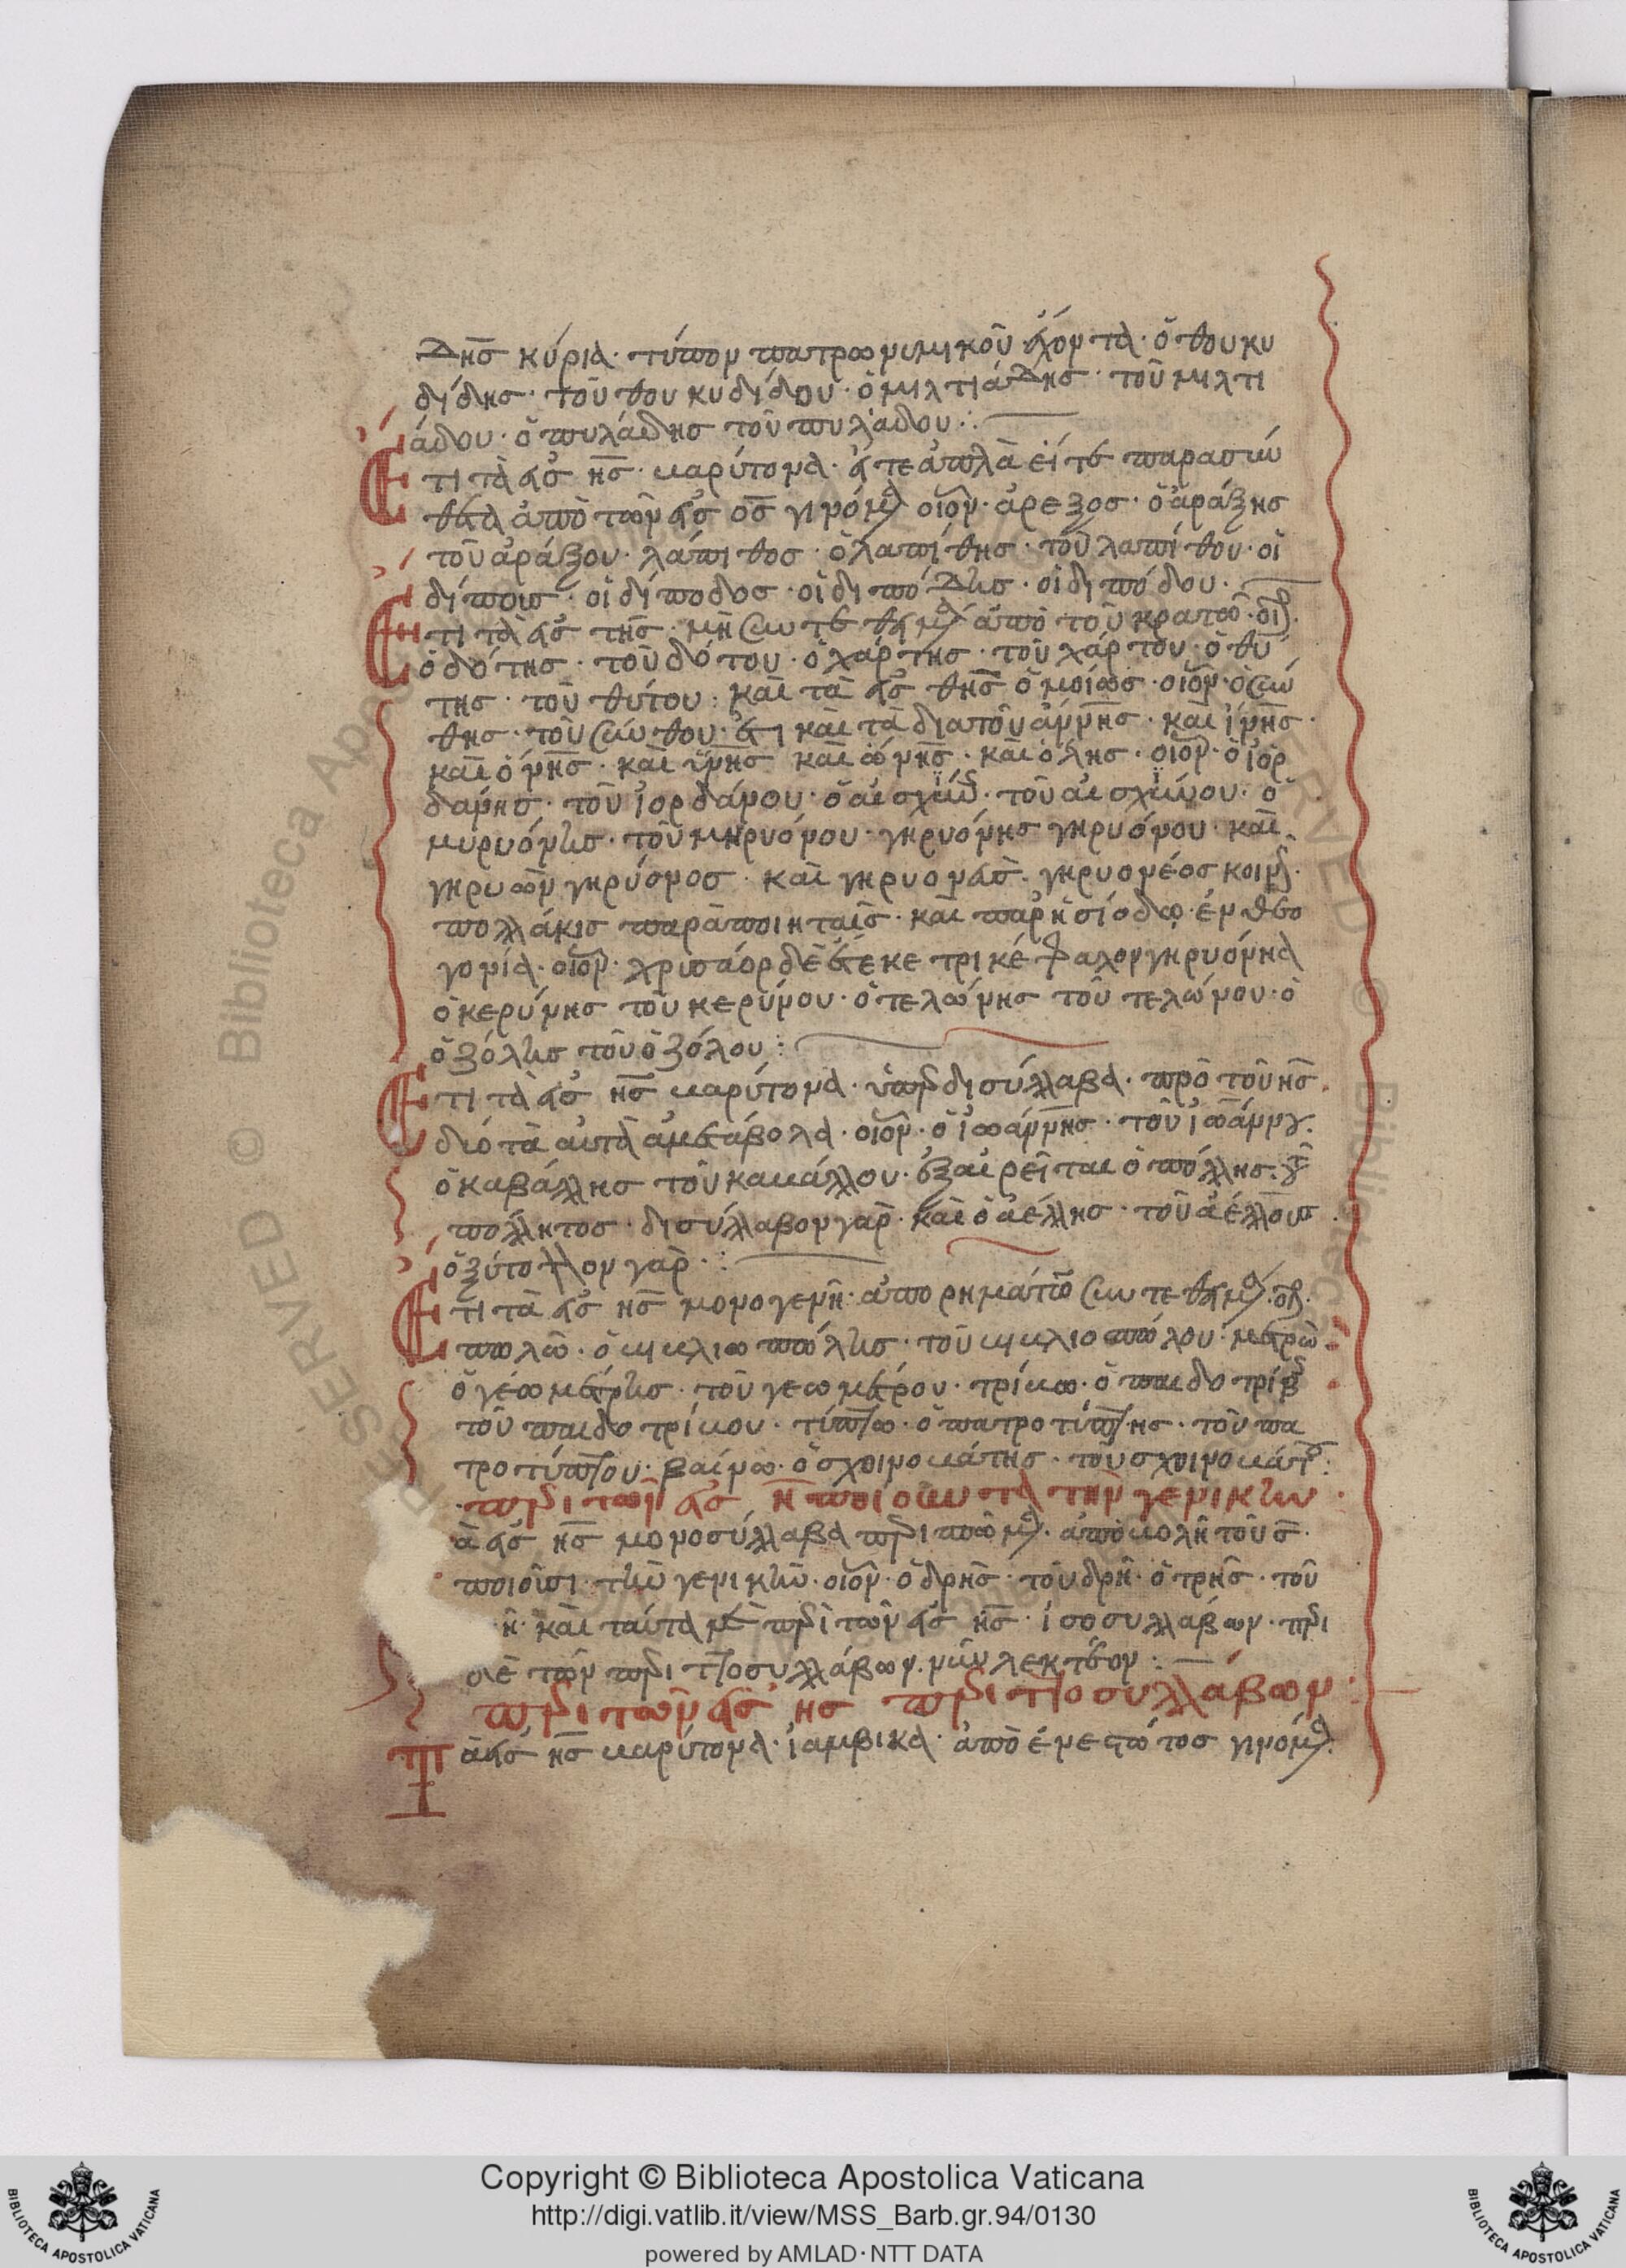 δης κύρια· τύπον πατρωνυμικοῦ ἔχοντα· ὁ θουκυ
δίδης· τοῦ θουκυδίδου· ὁ μιλτιάδης· τοῦ μιλτι
άδου· ὁ πυλάδης τοῦ πυλάδου:
Ἔτι τὰ εἰς ης βαρύτονα· εἴτε ἁπλὰ εἴτε παρασύν
θετα ἀπὸ τῶν εἰς ος γινόμε οἷον· ἄρεξος· ὁ ἀράξης
τοῦ ἀράξου· λάπιθος· ὁ λαπίθης· τοῦ λαπίθου· οἰ
δίπους· οἰδίποδος· οἰδιπόδης· οἰδιπόδου·
Ἔτι τὰ εἰς της· μὴ συντεθημε ἀπὸ τοῦ κρατῶ· οἷ
ὁ δότης· τοῦ δότου· ὁ χάρτης· τοῦ χάρτου· ὁ θύ
της· τοῦ θύτου: καὶ τὰ εἰς θης ὁμοίως· οἷον· ὁ σώ
θης· τοῦ σώθου· ἔτι καὶ τὰ διὰ τοῦ άννης· καὶ ίνης·
καὶ όνης· καὶ ύνης καὶ ώνης· καὶ όλης· οἷον· ὁ ἰορ
δάνης· τοῦ ἰορδάνου· ὁ αἰσχίν· τοῦ αἰσχίνου· ὁ
μυρυόνης· τοῦ μηρυόνου· γηρυόνης γηρυόνου· καὶ
γηρυὼν γηρύονος· καὶ γηρυονεὺς· γηρυονέος κοιν·
πολλάκις παρὰ ποιηταῖς· καὶ παρ' ἡσίοδω· ἐν θεο
γονία· οἷον· χρυσάορ δὲ ἔτεκε τρικέφαλον γηρυόνηα
ὁ κερύνης τοῦ κερύνου· ὁ τελώνης τοῦ τελώνου· ὁ
ὀζόλης τοῦ ὀζόλου:
Ἔτι τὰ εἰς ης βαρύτονα· ὑπὲρ δισύλλαβα· πρὸ τοῦ ης
διὸ τὰ αὐτὰ ἀμετάβολα· οἷον· ὁ ἰωάννης· τοῦ ἰωάννου·
ὁ καβάλλης τοῦ καβάλλου· ἐξαιρεῖται ὁ πόλλης·
πόλλητος· δισύλλαβον γὰρ· καὶ ὁ ἀέλλης· τοῦ ἀέλλους
ὀξύτονον γὰρ·:
Ἔτι τὰ εἰς ης μονογενῆ· ἀπὸ ρημάτων συντεθημε·
πολῶ· ὁ βιβλιοπώλης· τοῦ βιβλιοπώλου· μετρῶ·
ὁ γεωμέτρης· τοῦ γεωμέτρου· τρίβω· ὁ παιδοτρίβ
τοῦ παιδοτρίβου· τύπτω· ὁ πατροτύπτης· τοῦ πα
τροτύπτου· βαίνω· ὁ σχοινοβάτης· τοῦ σχοινοβάτ:
περὶ τῶν εἰς η ποιούντα τὴν γενικὴν·
ὰ εἰς ης μονοσύλλαβα περισπώμε· ἀποβολῆ τοῦ ς
ποιοῦσι τὴν γενικὴν· οἷον· ὁ δρῆς· τοῦ δρῆ· ὁ τρῆς· τοῦ
ῆ· καὶ ταῦτα μὲν περὶ τῶν εἰς ης· ἰσοσυλλάβων· περι
δὲ τῶν περιττοσυλλάβων· νῦν λεκτέον:
περὶ τῶν εἰς ης περιττοσυλλάβων·
Τὰ εἰς ης βαρύτονα· ἰαμβικὰ· ἀπὸ ἐνεστῶτος γινόμε
© Biblioteca Apostolica
RESERVED © Biblioteca Apo
Copyright © Biblioteca Apostolica Vaticana
http://digi.vatlib.it/view/MSS_Barb.gr.94/0130
powered by AMLAD·NTT DATA
BIBLIOTECA APOSTOLICA VATICANA
BIBLIOTECA APOSTOLICA VATICANA